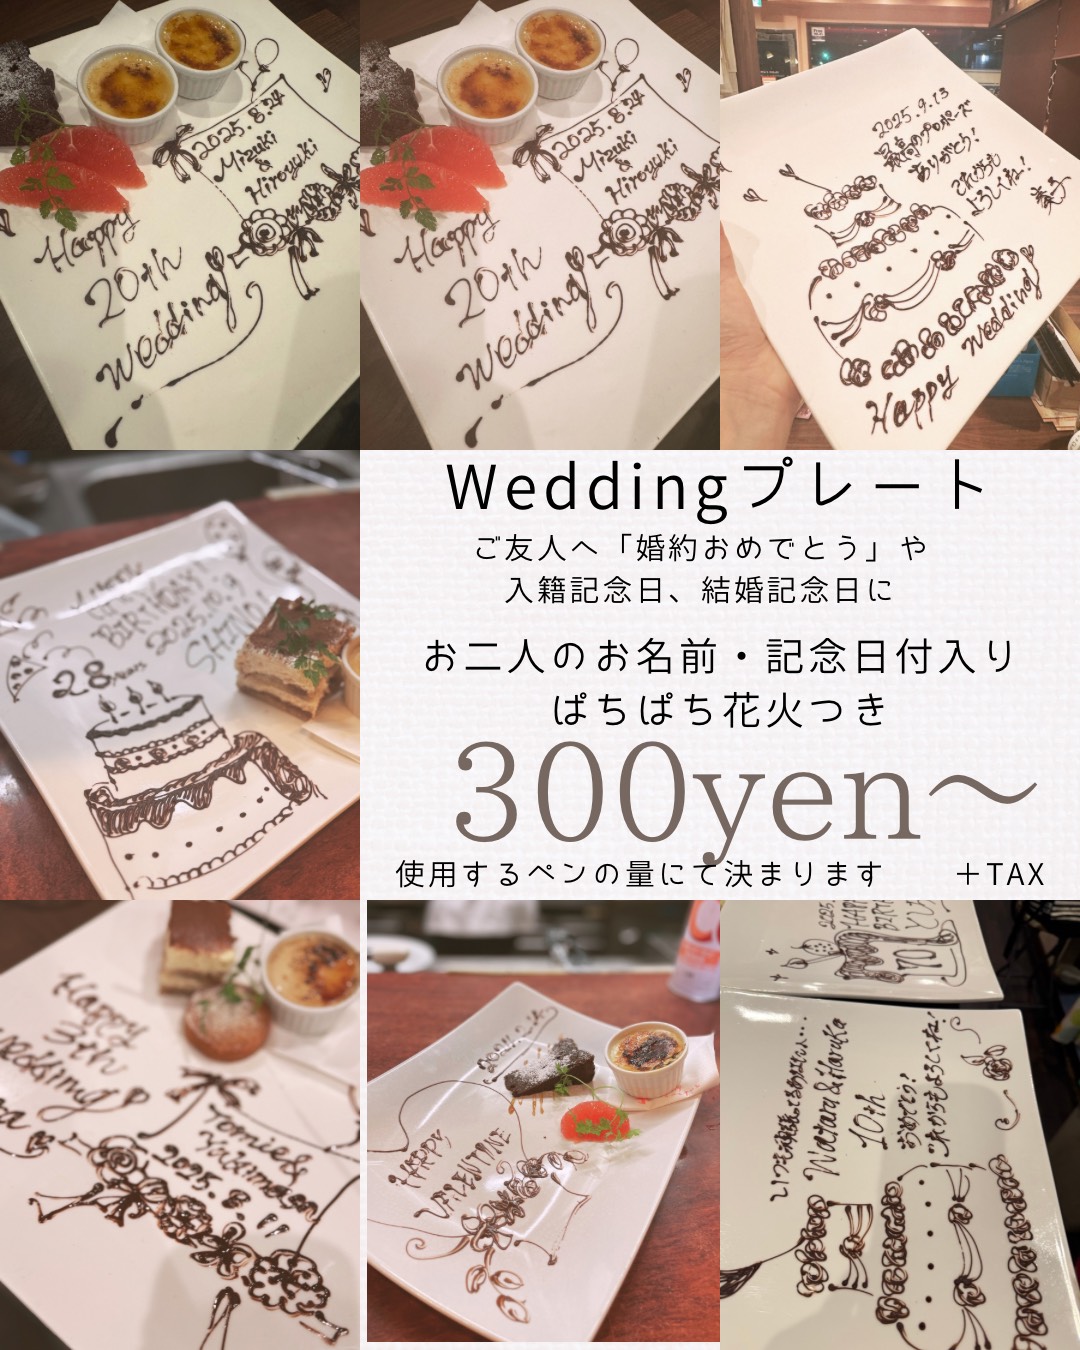 2025.8.24
Mizuki
&
Hiroyuki
Happy
20th
Wedding
2025.8.24
Mizuki
&
Hiroyuki
Happy
20th
Wedding
2025.9.13
最高のプロポーズ
ありがとう!
これからも
よろしくね!
Happy
Wedding
BIRTHDAY
28 years
Weddingプレート
ご友人へ「婚約おめでとう」や
入籍記念日、結婚記念日に
お二人のお名前・記念日付入り
ぱちぱち花火つき
300yen〜
使用するペンの量にて決まります
+TAX
Happy
5th
Wedding
Tomie &
2025.8.11
HAPPY
VALENTINE
Wataru & Haruka
10th
おめでとう!
これからもよろしくね!